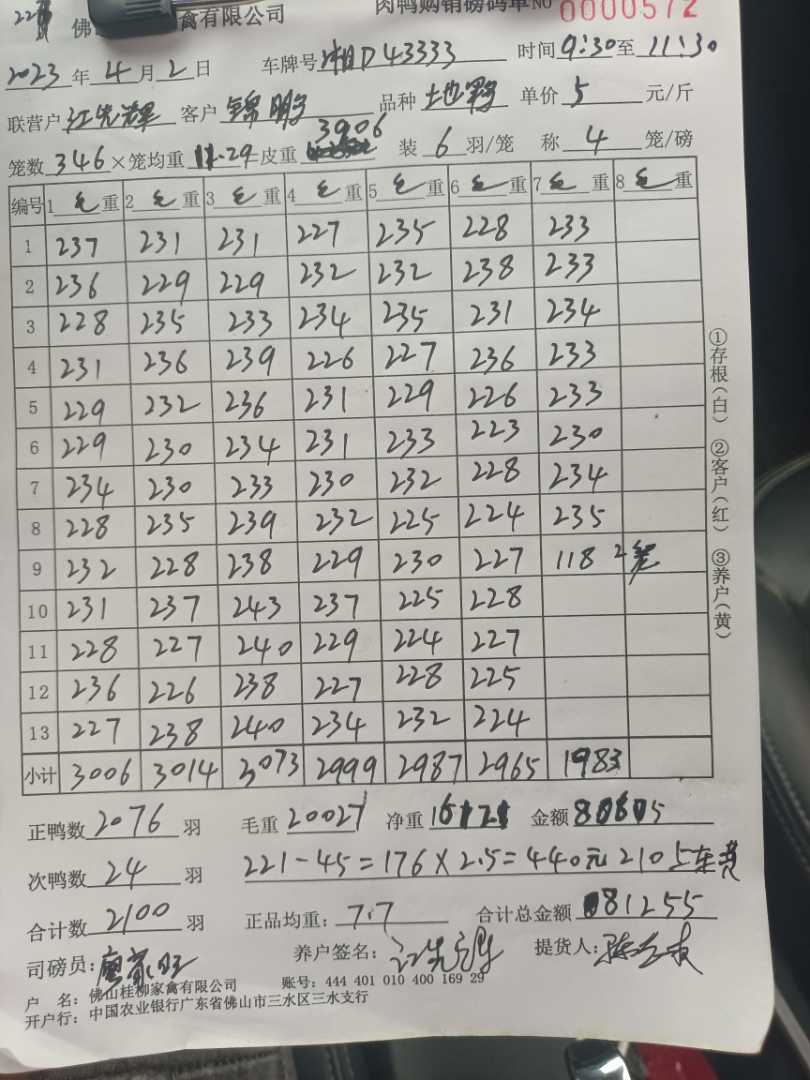 佛 禽有限公司 肉鸭购销磅码单 NO 0000572
2023 年 4 月 2 日 车牌号 湘D43333 时间 9:30 至 11:30
联营户 江先辉 客户 锦明 品种 土也 单价 5 元/斤
笼数 346 ×笼均重 11.29 =皮重 3906 装 6 羽/笼 称 4 笼/磅
编号 1 毛 重 2 毛 重 3 毛 重 4 毛 重 5 毛 重 6 毛 重 7 毛 重 8 毛 重
1 237 231 231 227 235 228 233
2 236 229 229 232 232 238 233
3 228 235 233 234 235 231 234
4 231 236 239 226 227 236 233
5 229 232 236 231 229 226 233
6 229 230 234 231 233 223 230
7 234 230 233 230 232 228 234
8 228 235 239 232 225 224 235
9 232 228 238 229 230 227 118 2笼
10 231 237 243 237 225 228
11 228 227 240 229 224 227
12 236 226 238 227 228 225
13 227 238 240 234 232 224
小计 3006 3014 3073 2999 2987 2965 1983
①存根(白) ②客户(红) ③养户(黄)
正鸭数 2076 羽 毛重 20027 净重 16121 金额 80605
次鸭数 24 羽 221-45=176×2.5=440元 210
合计数 2100 羽 正品均重: 7.7 合计总金额 81255
司磅员: 养户签名: 提货人:
户 名: 佛山桂柳家禽有限公司 账号: 444 401 010 400 169 29
开户行: 中国农业银行广东省佛山市三水区三水支行